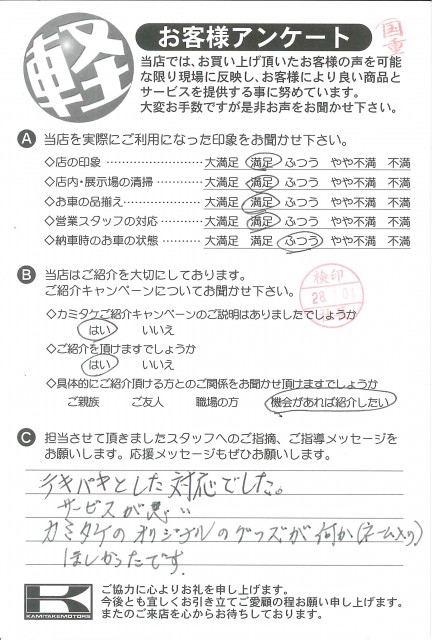 軽
お客様アンケート
国重
当店では、お買い上げ頂いたお客様の声を可能
な限り現場に反映し、お客様により良い商品と
サービスを提供する事に努めています。
大変お手数ですが是非お声をお聞かせ下さい。
A 当店を実際にご利用になった印象をお聞かせ下さい。
◇店の印象 ………………………… 大満足 満足 ふつう やや不満 不満
◇店内・展示場の清掃 …………… 大満足 満足 ふつう やや不満 不満
◇お車の品揃え …………………… 大満足 満足 ふつう やや不満 不満
◇営業スタッフの対応 …………… 大満足 満足 ふつう やや不満 不満
◇納車時のお車の状態 …………… 大満足 満足 ふつう やや不満 不満
B 当店はご紹介を大切にしております。
ご紹介キャンペーンについてお聞かせ下さい。
検印
28
◇カミタケご紹介キャンペーンのご説明はありましたでしょうか
はい いいえ
◇ご紹介を頂けますでしょうか
はい いいえ
◇具体的にご紹介頂ける方とのご関係をお聞かせ頂けますでしょうか
ご親族 ご友人 職場の方 機会があれば紹介したい
C 担当させて頂きましたスタッフへのご指摘、ご指導メッセージを
お願いします。応援メッセージもぜひお願いします。
テキパキとした対応でした。
サービスが
カミタケのオリジナルのグッズが何か(ネーム入り)
ほしかったです。
K
KAMITAKEMOTORS
ご協力に心よりお礼を申し上げます。
今後とも宜しくお引き立てご愛顧の程お願い申し上げます。
またのご来店を心からお待ちしております。